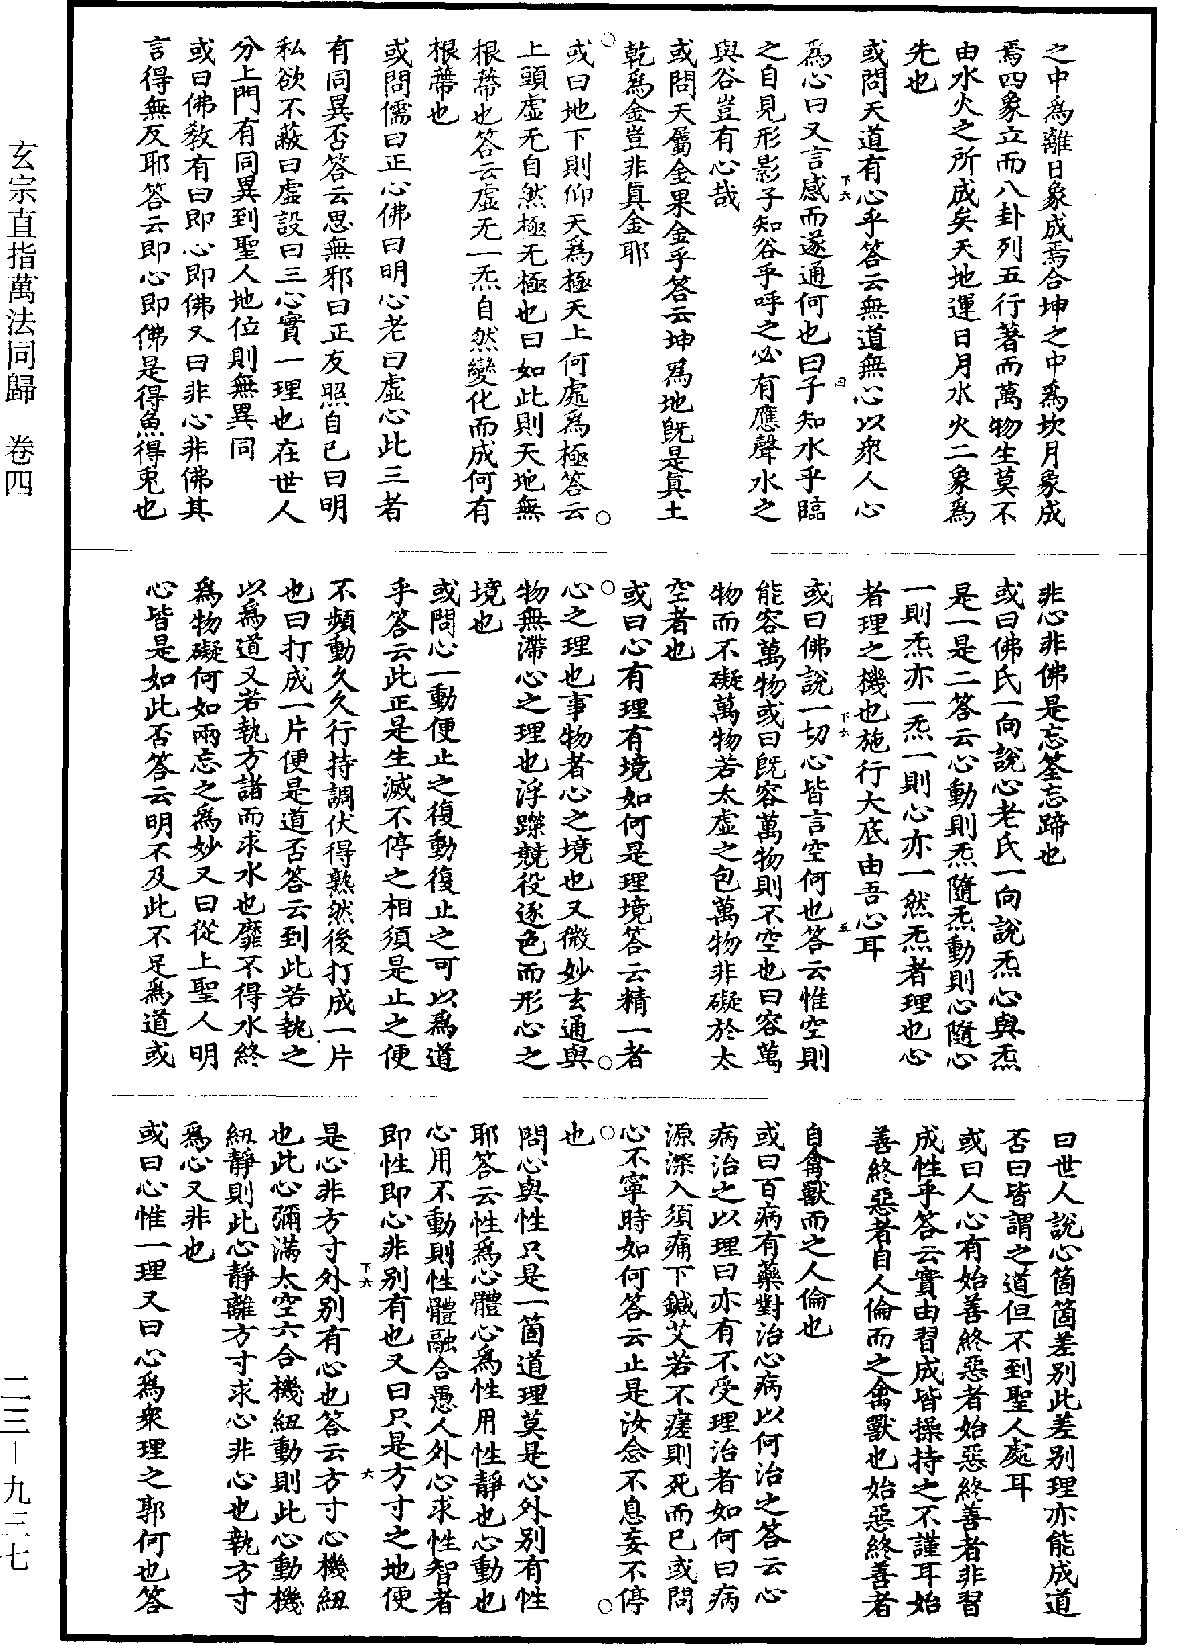 之中爲離日象成焉合坤之中爲坎月象成
焉四象立而八卦列五行著而萬物生莫不
由水火之所成矣天地運日月水火二象爲
先也
或問天道有心乎答云無道無心以衆人心
爲心曰又言感而遂通何也曰子知水乎臨
之自見形影子知谷乎呼之必有應聲水之
與谷豈有心哉
或問天屬金果金乎答云坤爲地旣是眞土
乾爲金豈非眞金耶
或曰地下則仰天爲極天上何處爲極答云
上頭虛无自然極无極也曰如此則天地無
根蔕也答云虛无一炁自然變化而成何有
根蔕也
或問儒曰正心佛曰明心老曰虛心此三者
有同異否答云思無邪曰正友照自己曰明
私欲不蔽曰虛設曰三心實一理也在世人
分上門有同異到聖人地位則無異同
或曰佛敎有曰即心即佛又曰非心非佛其
言得無反耶答云即心即佛是得魚得兎也
非心非佛是忘筌忘蹄也
或曰佛氏一向說心老氏一向說炁心與炁
是一是二答云心動則炁隨炁動則心隨心
一則炁亦一炁一則心亦一然炁者理也心
者理之機也施行大底由吾心耳
或曰佛說一切心皆言空何也答云惟空則
能容萬物或曰旣容萬物則不空也曰容萬
物而不礙萬物若太虛之包萬物非礙於太
空者也
或曰心有理有境如何是理境答云精一者
心之理也事物者心之境也又微妙玄通與
物無滯心之理也浮躁競役逐色而形心之
境也
或問心一動便止之復動復止之可以爲道
乎答云此正是生滅不停之相須是止之便
不頻動久久行持調伏得熟然後打成一片
也曰打成一片便是道否答云到此若執之
以爲道又若執方諸而求水也靡不得水終
爲物礙何如兩忘之爲妙又曰從上聖人明
心皆是如此否答云明不及此不足爲道或
曰世人說心箇箇差別此差別理亦能成道
否曰皆謂之道但不到聖人處耳
或曰人心有始善終惡者始惡終善者非習
成性乎答云實由習成皆操持之不謹耳始
善終惡者自人倫而之禽獸也始惡終善者
自禽獸而之人倫也
或曰百病有藥對治心病以何治之答云心
病治之以理曰亦有不受理治者如何曰病
源深入須痛下鍼艾若不瘥則死而已或問
心不寧時如何答云止是汝念不息妄不停
也
問心與性只是一箇道理莫是心外別有性
耶答云性爲心體心爲性用性靜也心動也
心用不動則性體融合愚人外心求性智者
即性即心非別有也又曰只是方寸之地便
是心非方寸外別有心也答云方寸心機紐
也此心彌滿太空六合機紐動則此心動機
紐靜則此心靜離方寸求心非心也執方寸
爲心又非也
或曰心惟一理又曰心爲衆理之郭何也答
玄宗直指萬法同歸　卷四
二三－九三七